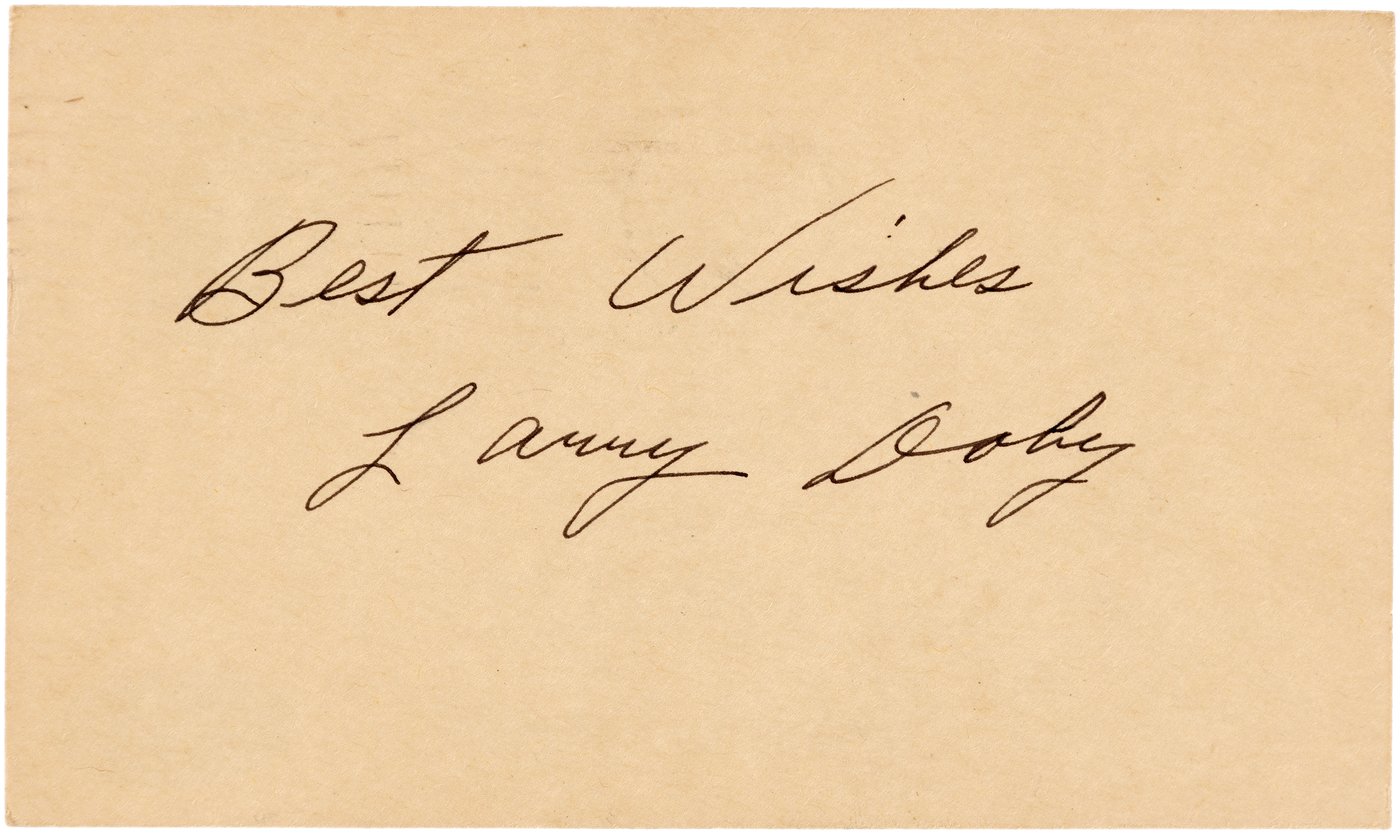 Best Wishes
Larry Doby